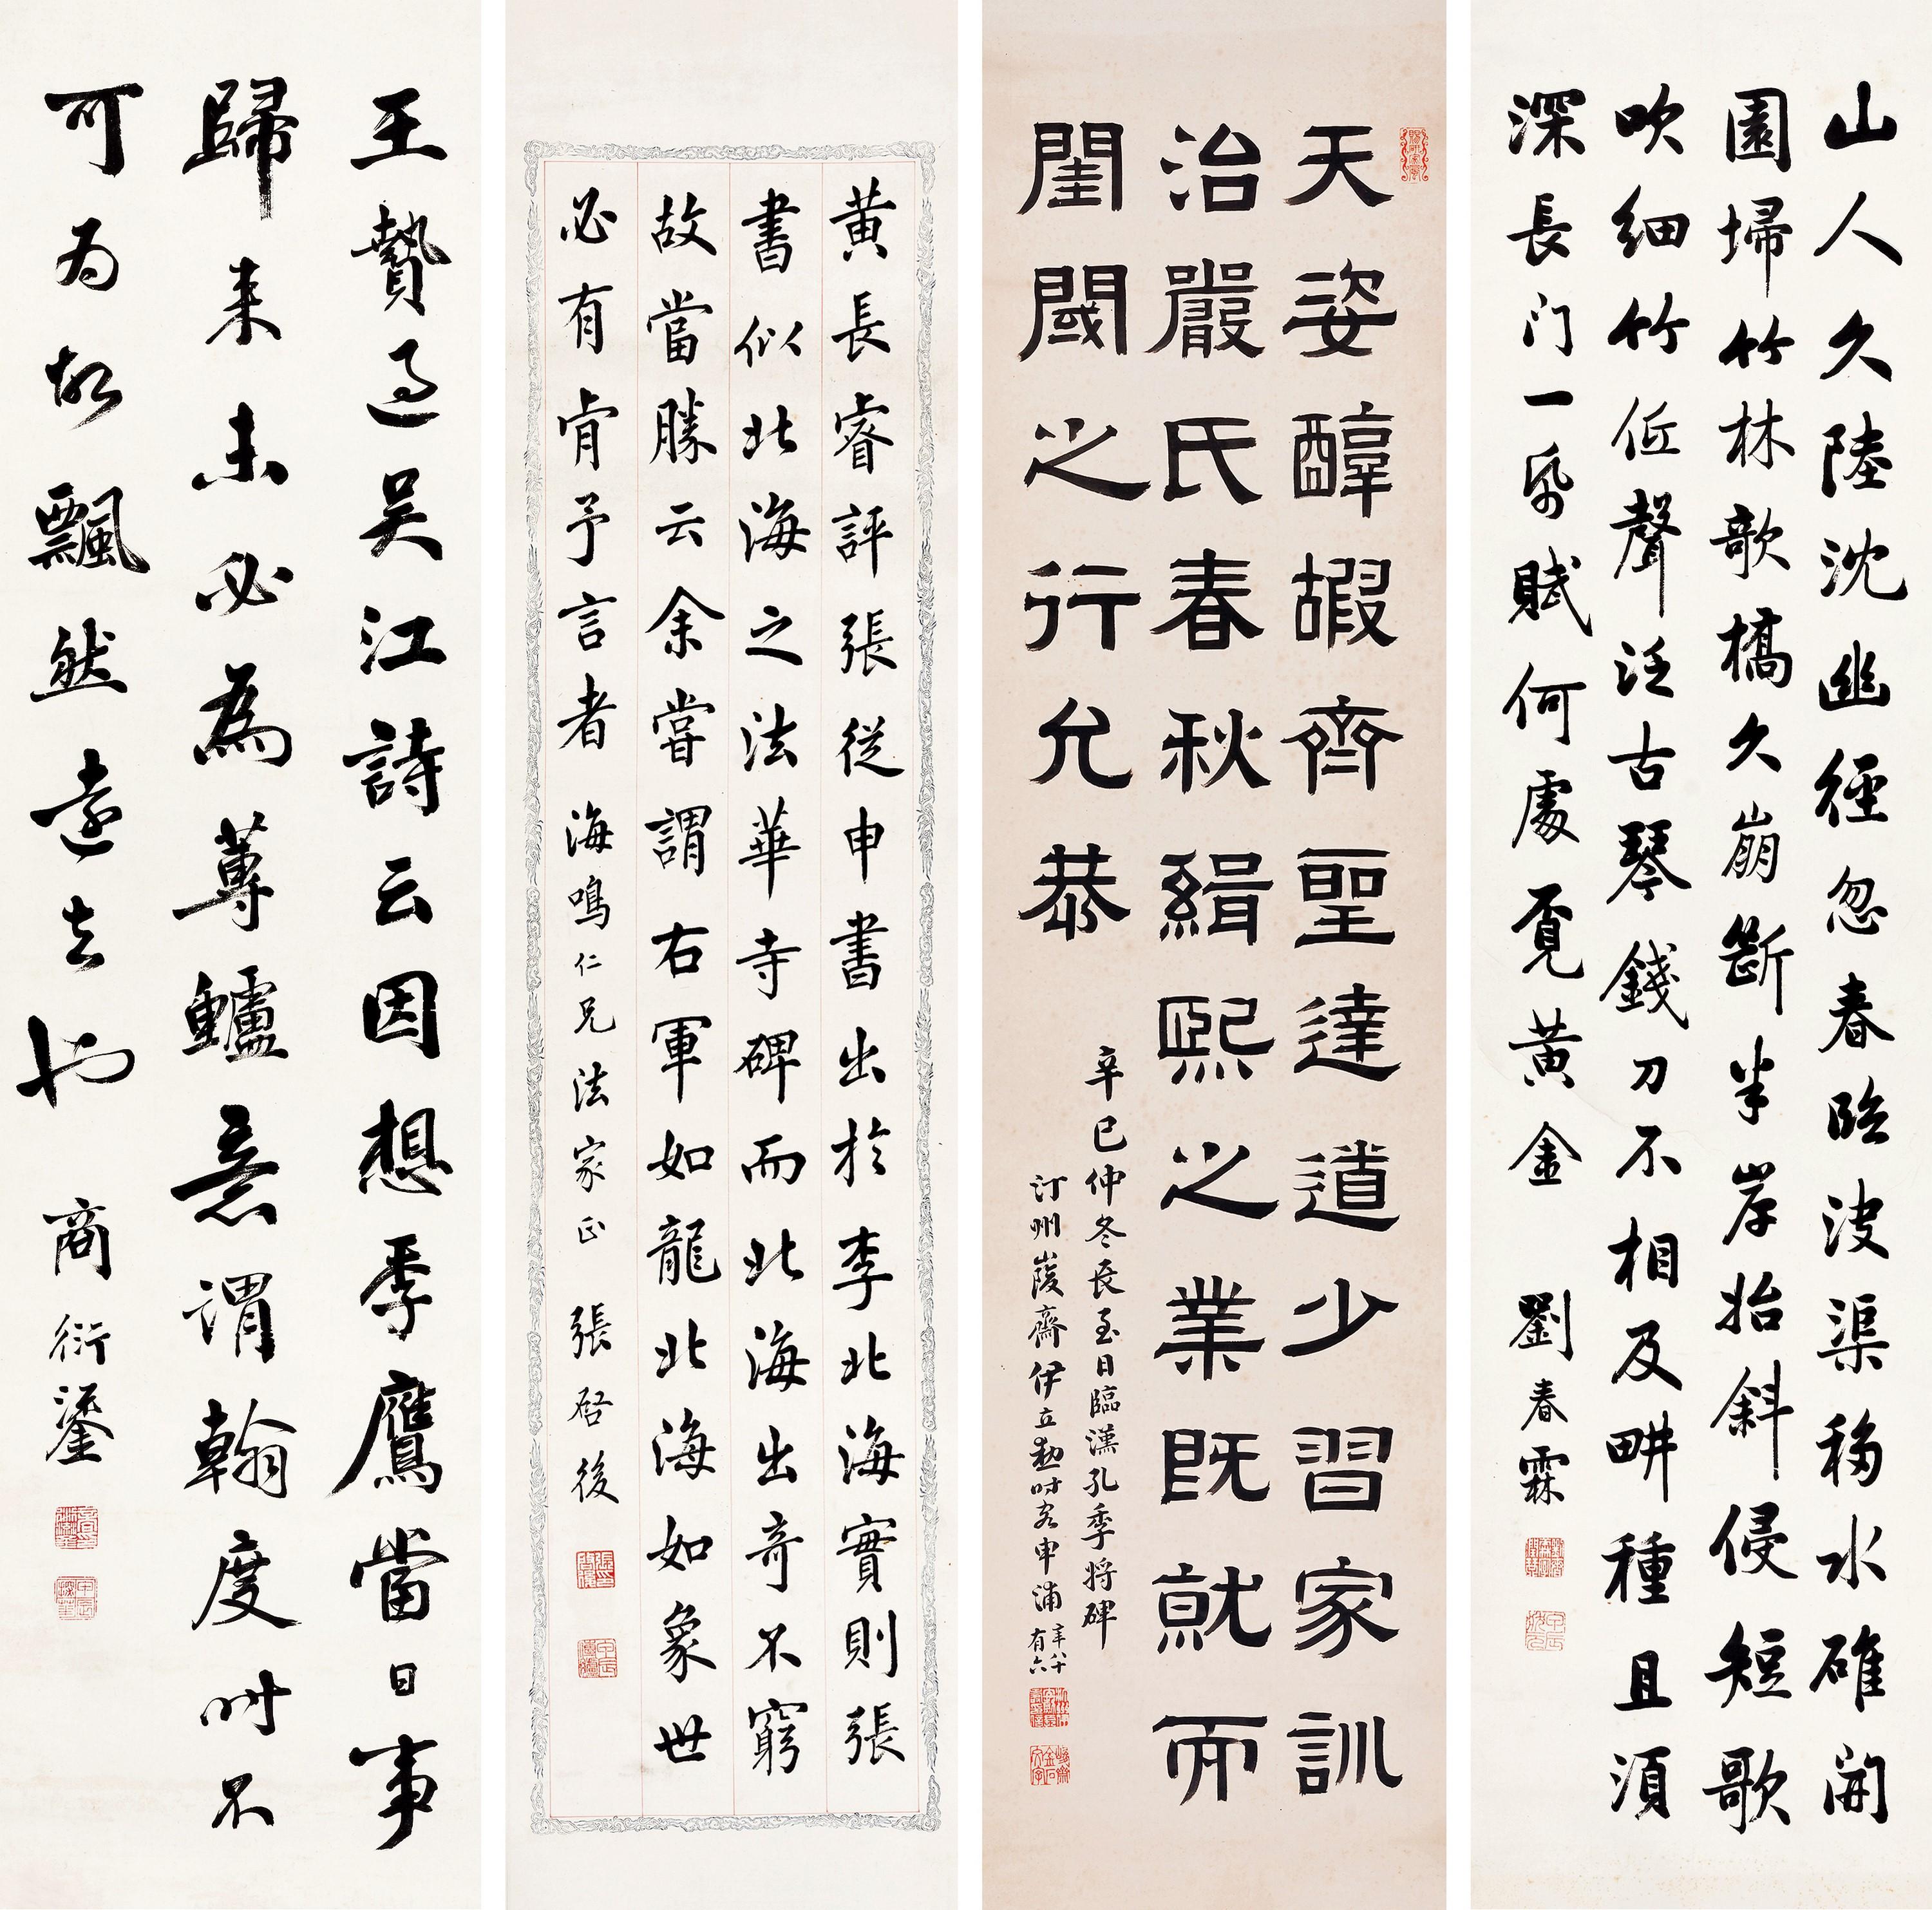 山人久陸沈幽徑忽春臨波渠移水碓開
園埽竹林歌橋久崩斷半岸抬斜侵短歌
吹細竹低聲泛古琴錢刀不相及畊種且須
深長门一紙賦何處覓黃金 劉春霖
天姿醇嘏齊聖達道少習家訓
治嚴氏春秋緝熙之業既就而
閨閾之行允恭
辛巳仲冬長至日臨漢孔季將碑
汀州峻齋伊立勳时客申浦年八十有六
黃長睿評張從申書出於李北海實則張
書似北海之法華寺碑而北海出奇不窮
故當勝云余嘗謂右軍如龍北海如象世
必有肯予言者 海鳴仁兄法家正 張啓後
王贄過吳江詩云因想季鷹當日事
歸來未必為蓴鱸意謂翰度时不
可为故飄然遠去也 商衍鎏